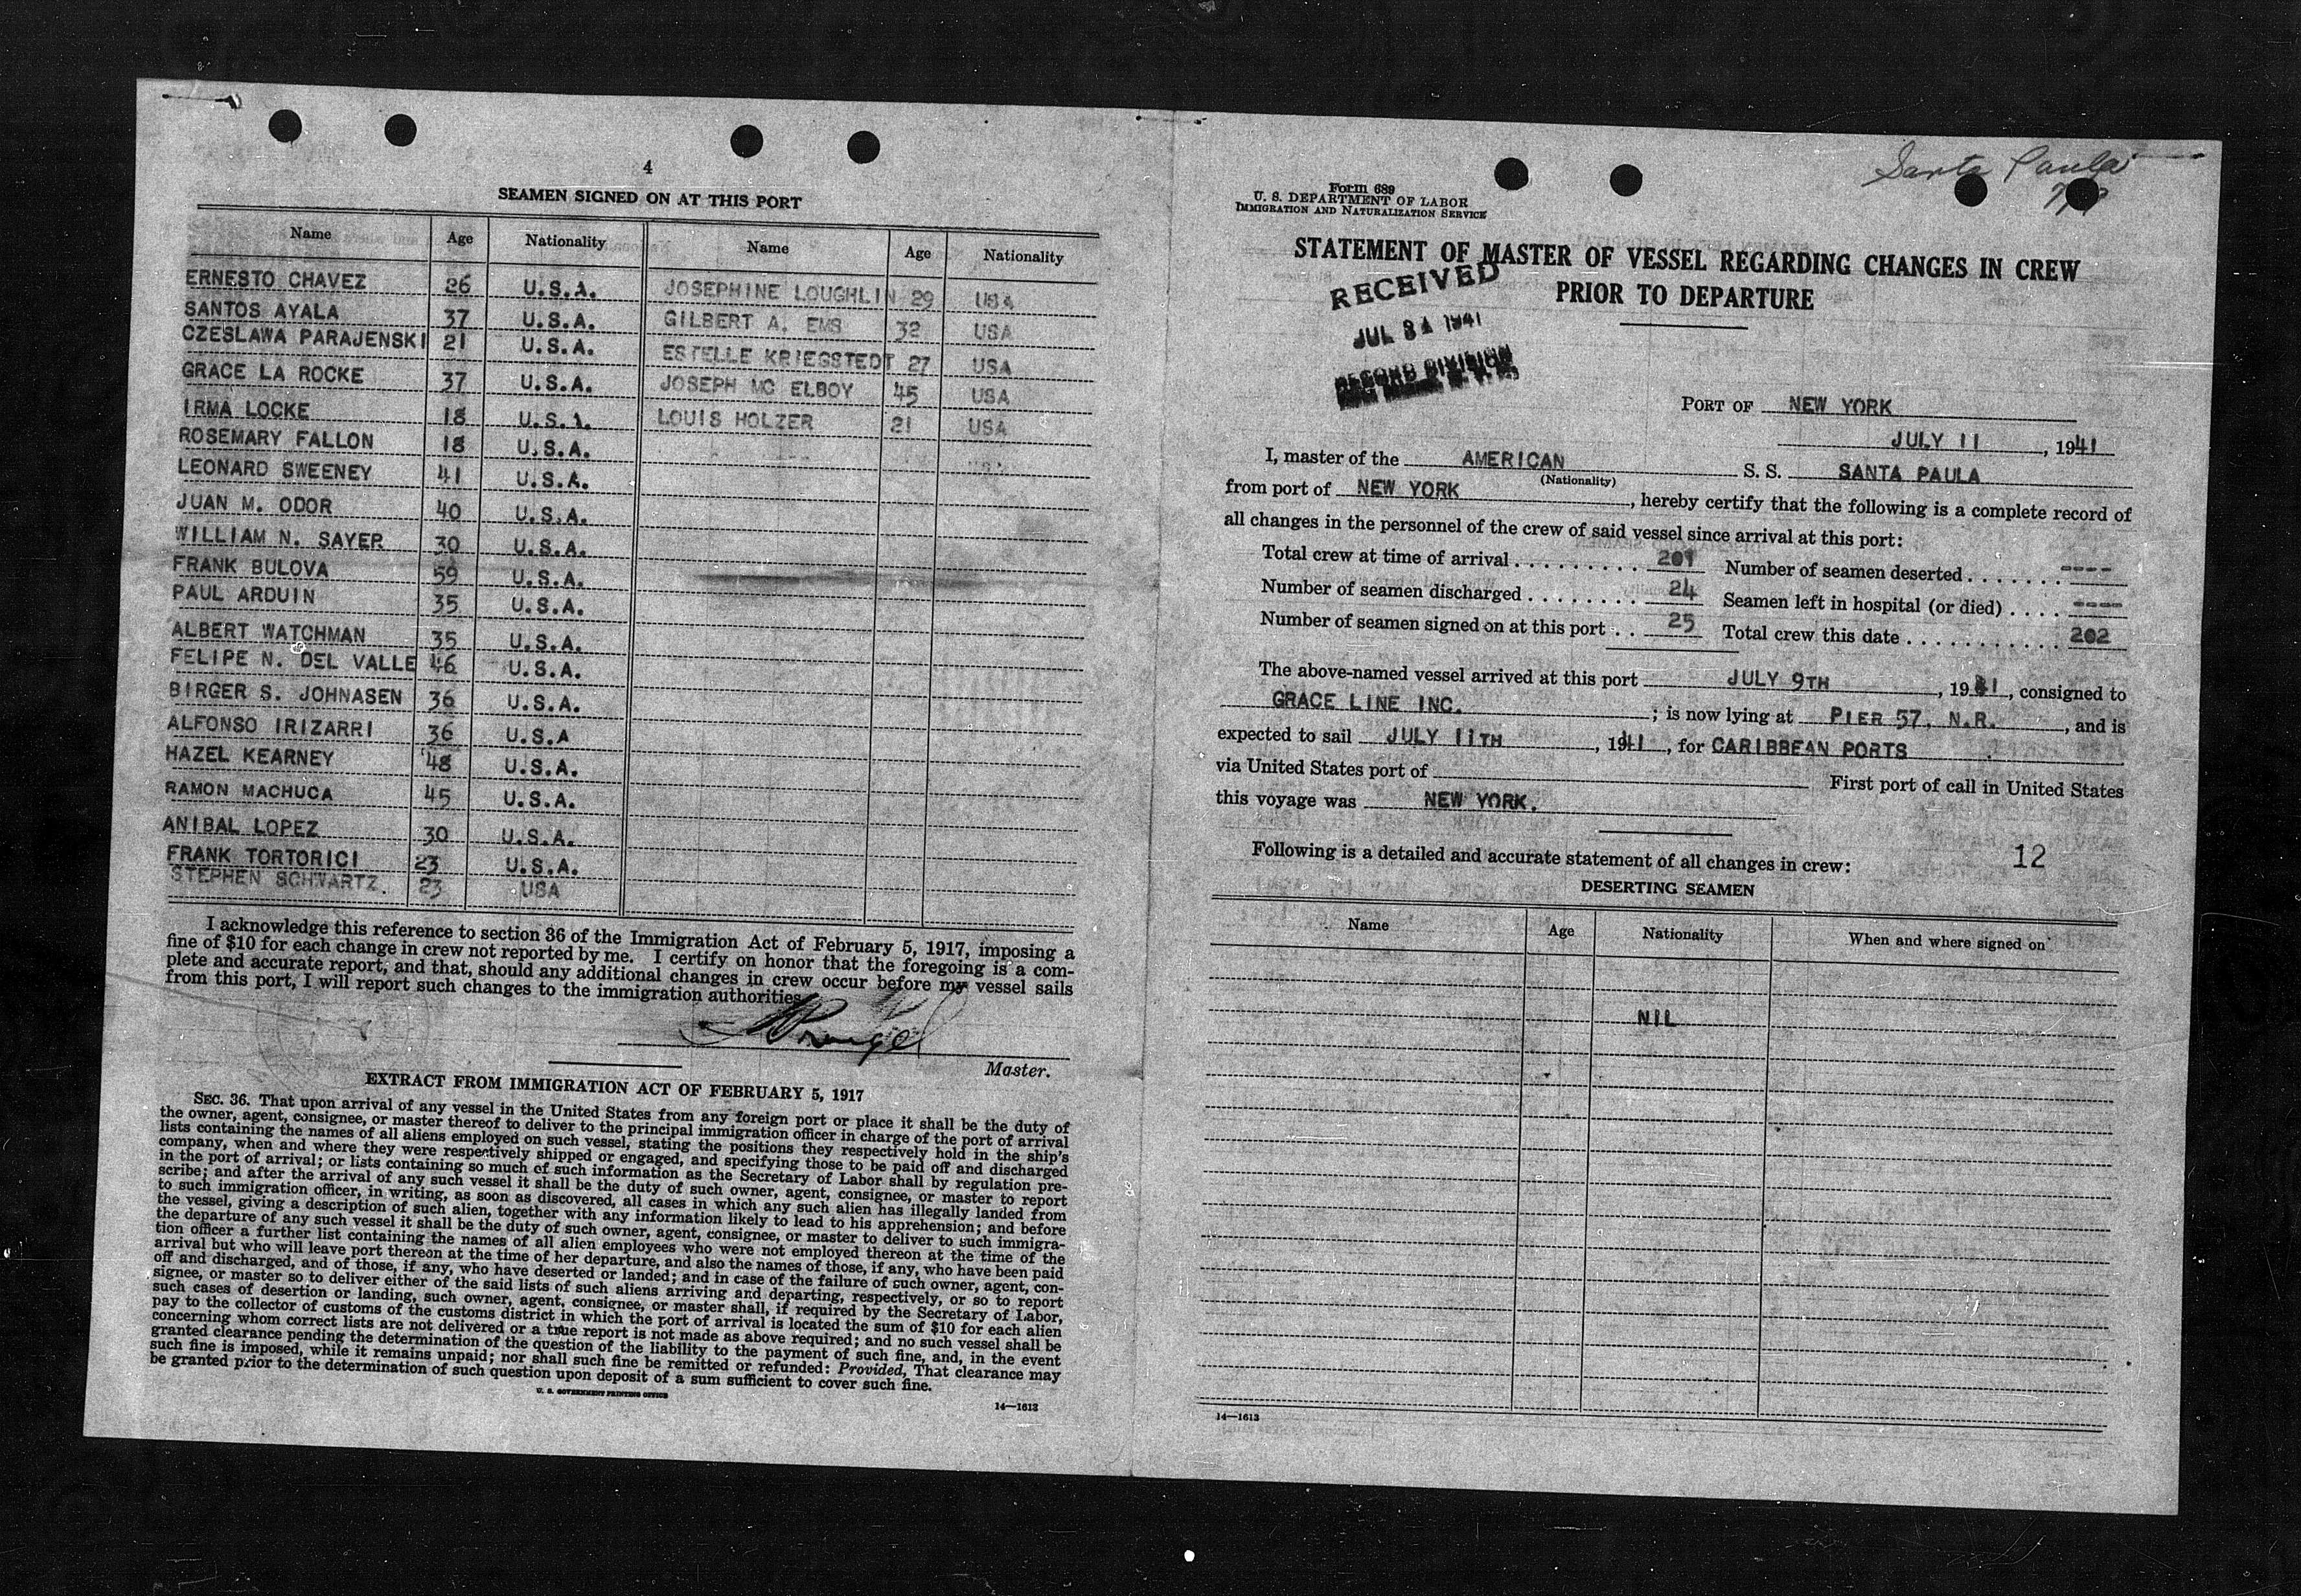 4
SEAMEN SIGNED ON AT THIS PORT
Name Age Nationality Name Age Nationality
ERNESTO CHAVEZ 26 U.S.A. JOSEPHINE LOUGHLIN 29 USA
SANTOS AYALA 37 U.S.A. GILBERT A. EMS 32 USA
CZESLAWA PARAJENSKI 21 U.S.A. ESTELLE KRIEGSTEDT 27 USA
GRACE LA ROCKE 37 U.S.A. JOSEPH MC ELBOY 45 USA
IRMA LOCKE 18 U.S.A. LOUIS HOLZER 21 USA
ROSEMARY FALLON 18 U.S.A.
LEONARD SWEENEY 41 U.S.A.
JUAN M. ODOR 40 U.S.A.
WILLIAM N. SAYER 30 U.S.A.
FRANK BULOVA 59 U.S.A.
PAUL ARDUIN 35 U.S.A.
ALBERT WATCHMAN 35 U.S.A.
FELIPE N. DEL VALLE 46 U.S.A.
BIRGER S. JOHNASEN 36 U.S.A.
ALFONSO IRIZARRI 36 U.S.A
HAZEL KEARNEY 48 U.S.A.
RAMON MACHUCA 45 U.S.A.
ANIBAL LOPEZ 30 U.S.A.
FRANK TORTORICI 23 U.S.A.
STEPHEN SCHWARTZ. 23 USA
I acknowledge this reference to section 36 of the Immigration Act of February 5, 1917, imposing a
fine of $10 for each change in crew not reported by me. I certify on honor that the foregoing is a com-
plete and accurate report, and that, should any additional changes in crew occur before my vessel sails
from this port, I will report such changes to the immigration authorities.
Master.
EXTRACT FROM IMMIGRATION ACT OF FEBRUARY 5, 1917
SEC. 36. That upon arrival of any vessel in the United States from any foreign port or place it shall be the duty of
the owner, agent, consignee, or master thereof to deliver to the principal immigration officer in charge of the port of arrival
lists containing the names of all aliens employed on such vessel, stating the positions they respectively hold in the ship's
company, when and where they were respectively shipped or engaged, and specifying those to be paid off and discharged
in the port of arrival; or lists containing so much of such information as the Secretary of Labor shall by regulation pre-
scribe; and after the arrival of any such vessel it shall be the duty of such owner, agent, consignee, or master to report
to such immigration officer, in writing, as soon as discovered, all cases in which any such alien has illegally landed from
the vessel, giving a description of such alien, together with any information likely to lead to his apprehension; and before
the departure of any such vessel it shall be the duty of such owner, agent, consignee, or master to deliver to such immigra-
tion officer a further list containing the names of all alien employees who were not employed thereon at the time of the
arrival but who will leave port thereon at the time of her departure, and also the names of those, if any, who have been paid
off and discharged, and of those, if any, who have deserted or landed; and in case of the failure of such owner, agent, con-
signee, or master so to deliver either of the said lists of such aliens arriving and departing, respectively, or so to report
such cases of desertion or landing, such owner, agent, consignee, or master shall, if required by the Secretary of Labor,
pay to the collector of customs of the customs district in which the port of arrival is located the sum of $10 for each alien
concerning whom correct lists are not delivered or a true report is not made as above required; and no such vessel shall be
granted clearance pending the determination of the question of the liability to the payment of such fine, and, in the event
such fine is imposed, while it remains unpaid; nor shall such fine be remitted or refunded: Provided, That clearance may
be granted prior to the determination of such question upon deposit of a sum sufficient to cover such fine.
U. S. GOVERNMENT PRINTING OFFICE
14—1613
Santa Paula
Form 689
U. S. DEPARTMENT OF LABOR
IMMIGRATION AND NATURALIZATION SERVICE
STATEMENT OF MASTER OF VESSEL REGARDING CHANGES IN CREW
PRIOR TO DEPARTURE
RECEIVED
JUL 31 1941
RECORD DIVISION
PORT OF NEW YORK
JULY 11, 1941
I, master of the AMERICAN S. S. SANTA PAULA
(Nationality)
from port of NEW YORK, hereby certify that the following is a complete record of
all changes in the personnel of the crew of said vessel since arrival at this port:
Total crew at time of arrival . . . . . . . . . 201 Number of seamen deserted . . . . . . . ----
Number of seamen discharged . . . . . . . . 24 Seamen left in hospital (or died) . . . . ----
Number of seamen signed on at this port . . 25 Total crew this date . . . . . . . . . . . 202
The above-named vessel arrived at this port JULY 9TH, 1941, consigned to
GRACE LINE INC. ; is now lying at PIER 57, N.R., and is
expected to sail JULY 11TH, 1941, for CARIBBEAN PORTS
via United States port of First port of call in United States
this voyage was NEW YORK.
Following is a detailed and accurate statement of all changes in crew: 12
DESERTING SEAMEN
Name Age Nationality When and where signed on
NIL
14—1613